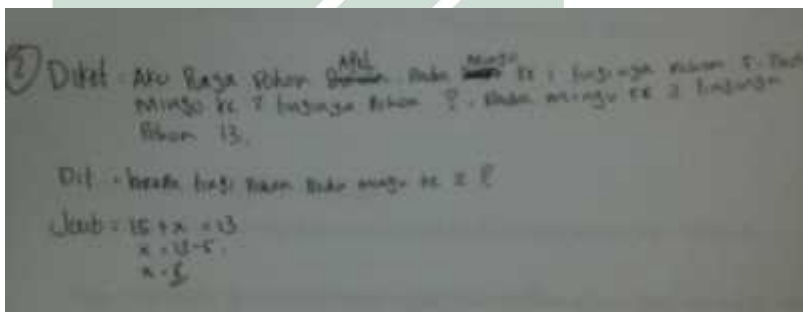 ② Diket : Aku Punya Pohon Apel. Pada Minggu ke 1 tingginya Pohon 5. Pada
Minggu ke 2 tingginya Pohon ?. Pada minggu ke 3 tingginya
Pohon 13.
Dit : berapa tinggi Pohon Pada minggu ke 2 ?
Jawab = 15 + x = 13
x = 13 - 5
x =